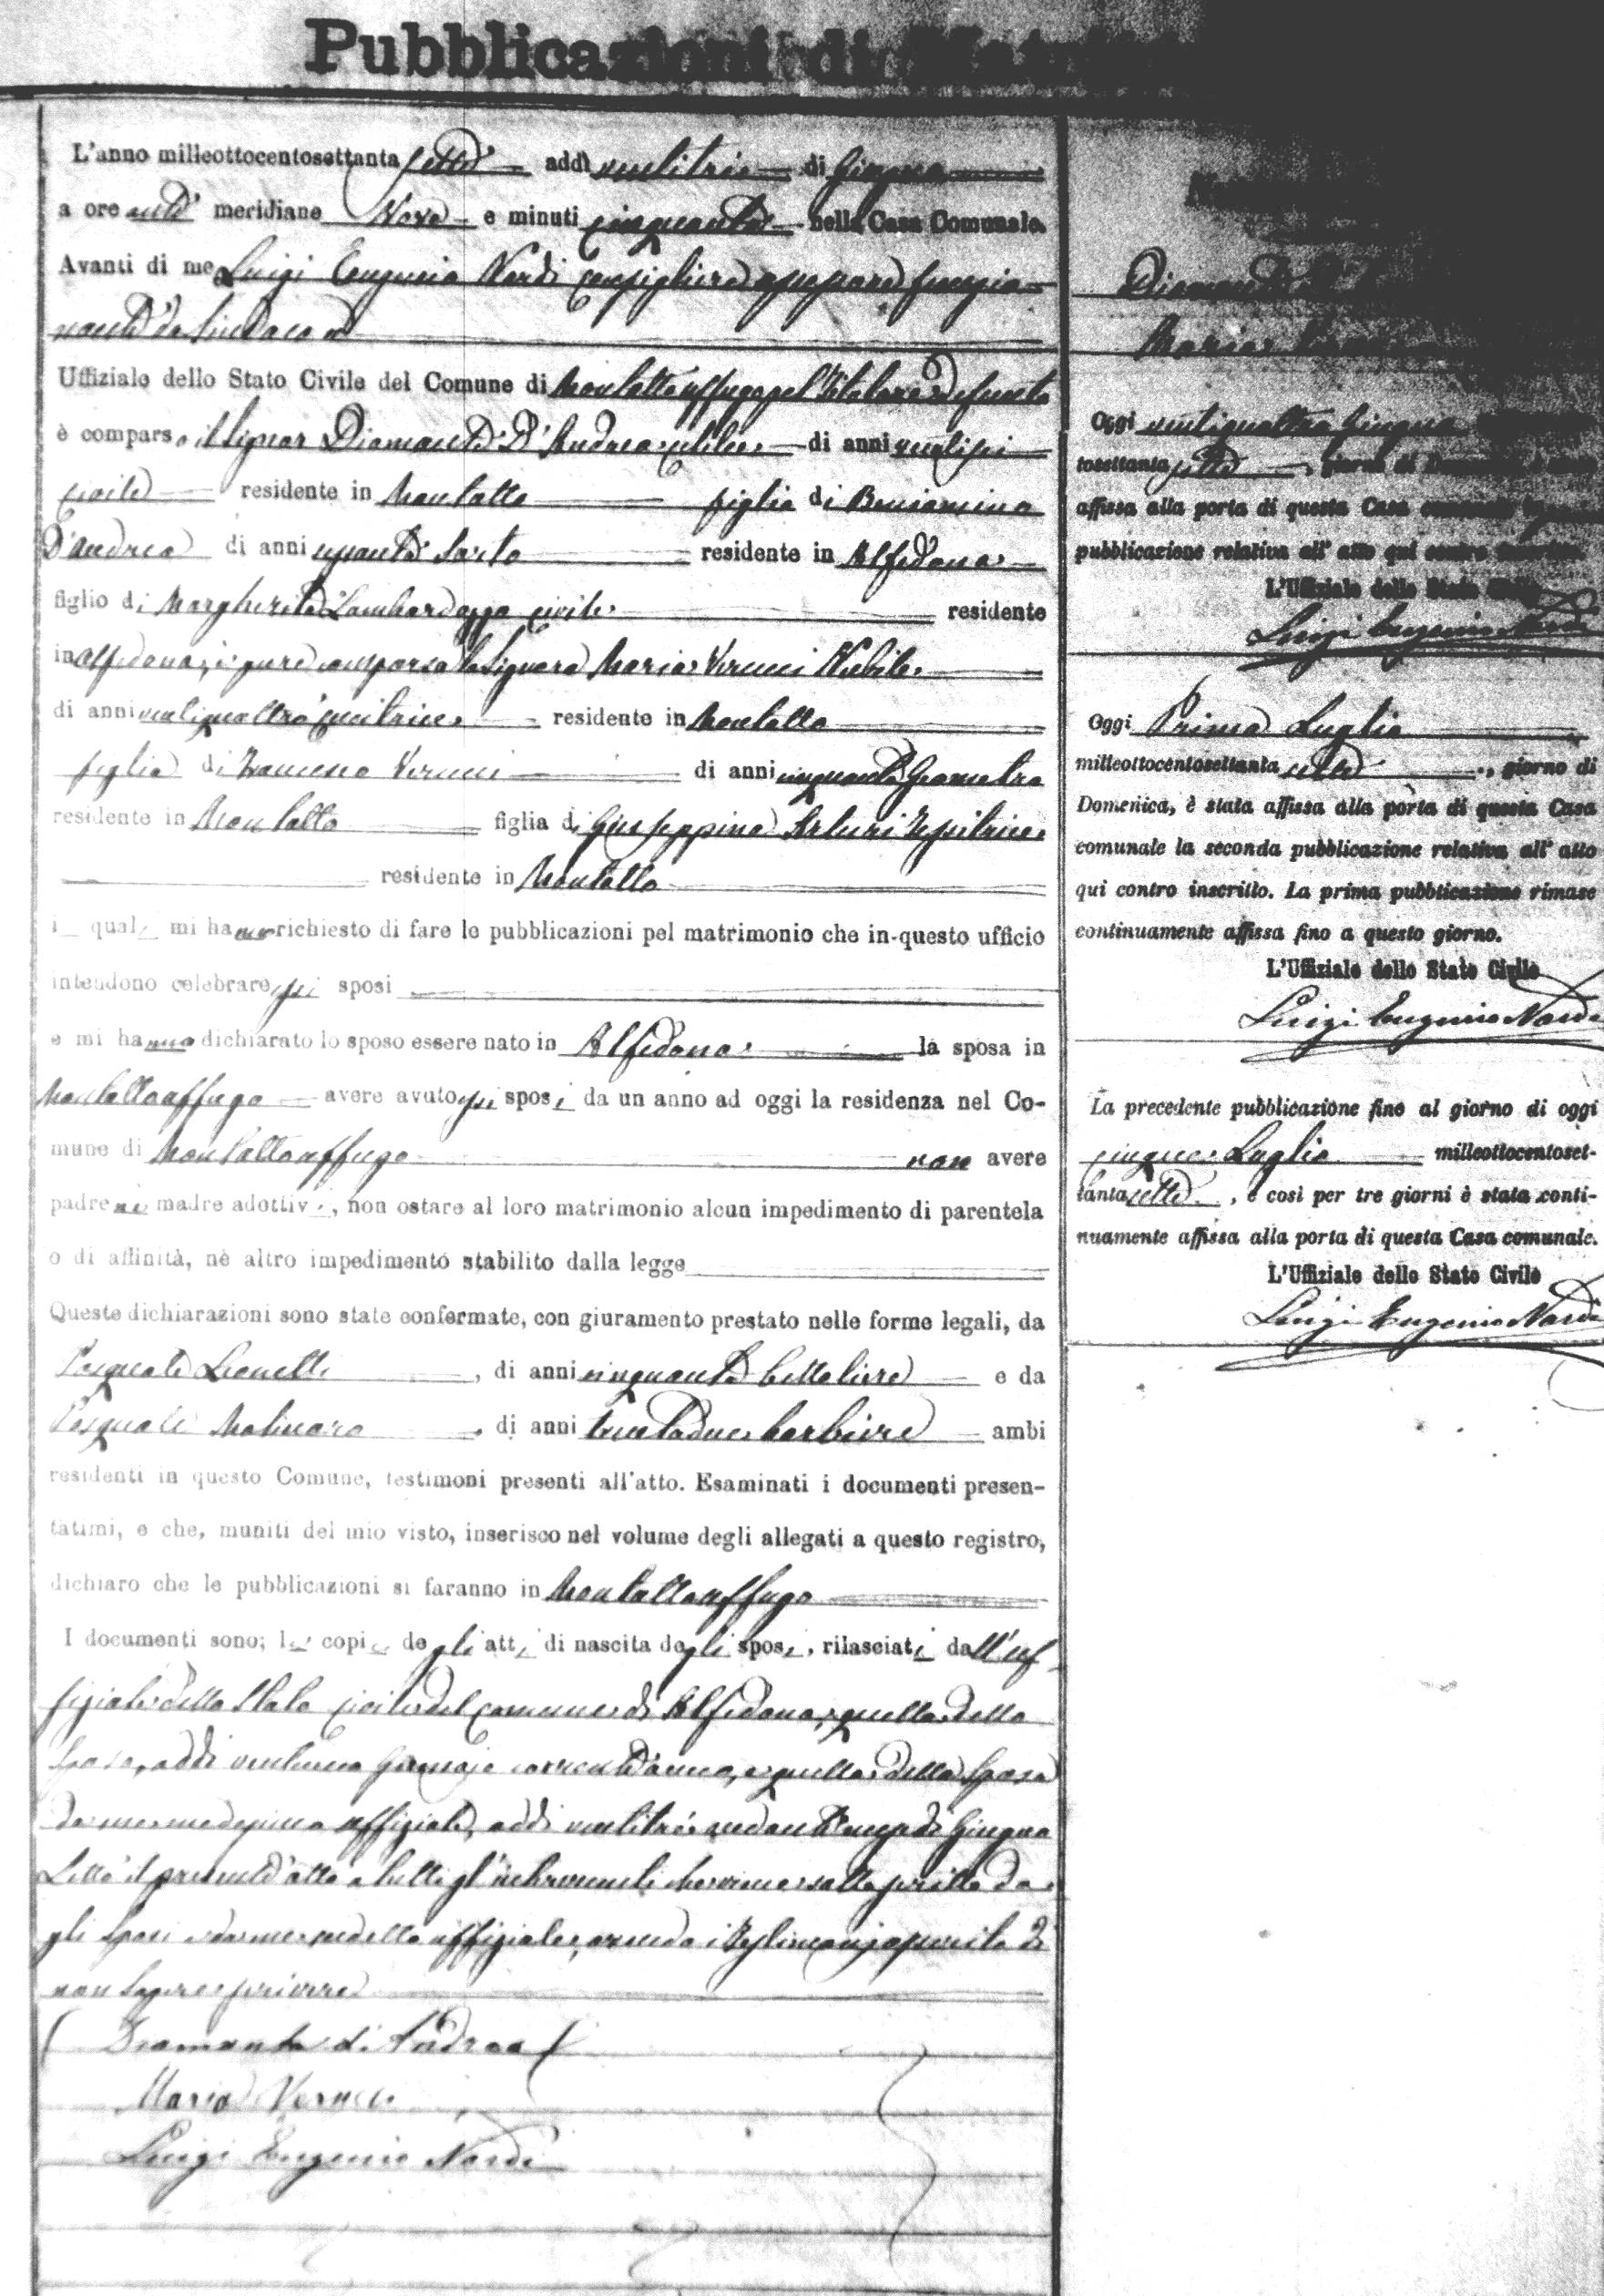 Pubblicazioni di
L'anno milleottocentosettanta sette addì ventitrè di Giugno
a ore anti meridiane Nove e minuti cinquanta nella Casa Comunale.
Avanti di me Luigi Eugenio Nardi Consigliere assessore funzio-
nante da Sindaco
Uffiziale dello Stato Civile del Comune di Montaltouffugo pel titolare defunto
è comparso il signor Diamante D'Andrea celibe di anni ventisei
civile residente in Montalto figlio di Beniamino
D'Andrea di anni sarto residente in Alfedena
figlio di Margherita Lombardozzo civile residente
in Alfedena, è pure comparsa la Signora Maria Verucci Nubile
di anni ventiquattro cucitrice residente in Montalto
figlia di Francesco Verucci di anni cinquanta Geometra
residente in Montalto figlia di Giuseppina Arturi Tessitrice
residente in Montalto
i quali mi hanno richiesto di fare le pubblicazioni pel matrimonio che in questo ufficio
intendono celebrare essi sposi
e mi hanno dichiarato lo sposo essere nato in Alfedena la sposa in
Montaltouffugo avere avuto essi sposi da un anno ad oggi la residenza nel Co-
mune di Montaltouffugo non avere
padre nè madre adottivi, non ostare al loro matrimonio alcun impedimento di parentela
o di affinità, nè altro impedimento stabilito dalla legge
Queste dichiarazioni sono state confermate, con giuramento prestato nelle forme legali, da
Pasquale Lionetti, di anni cinquanta bettoliere e da
Pasquale Molinaro, di anni trentadue barbiere ambi
residenti in questo Comune, testimoni presenti all'atto. Esaminati i documenti presen-
tatimi, e che, muniti del mio visto, inserisco nel volume degli allegati a questo registro,
dichiaro che le pubblicazioni si faranno in Montaltouffugo
I documenti sono; le copie degli atti di nascita degli sposi, rilasciati dall'uf-
fiziale dello Stato Civile del Comune di Alfedena, quella dello
Sposo, addì ventuno corrente anno, e quella della Sposa
da me medesimo uffiziale, addì ventitrè andante mese di Giugno
Letto il presente atto a tutti gl'intervenuti che viene sottoscritto da-
gli Sposi e da me sudetto uffiziale, avendo i Testimonj asserito di
non sapere scrivere
Diamante d'Andrea
Maria Verucci
Luigi Eugenio Nardi
Diamante
Maria
Oggi ventiquattro Giugno
tosettanta sette, giorno di Domenica
affissa alla porta di questa Casa comunale
pubblicazione relativa all'atto qui contro
L'Uffiziale dello Stato Civile
Luigi Eugenio Nardi
Oggi Primo Luglio
milleottocentosettanta sette, giorno di
Domenica, è stata affissa alla porta di questa Casa
comunale la seconda pubblicazione relativa all'atto
qui contro inscritto. La prima pubblicazione rimase
continuamente affissa fino a questo giorno.
L'Uffiziale dello Stato Civile
Luigi Eugenio Nardi
La precedente pubblicazione fino al giorno di oggi
cinque Luglio milleottocentoset-
tanta sette, e così per tre giorni è stata conti-
nuamente affissa alla porta di questa Casa comunale.
L'Uffiziale dello Stato Civile
Luigi Eugenio Nardi